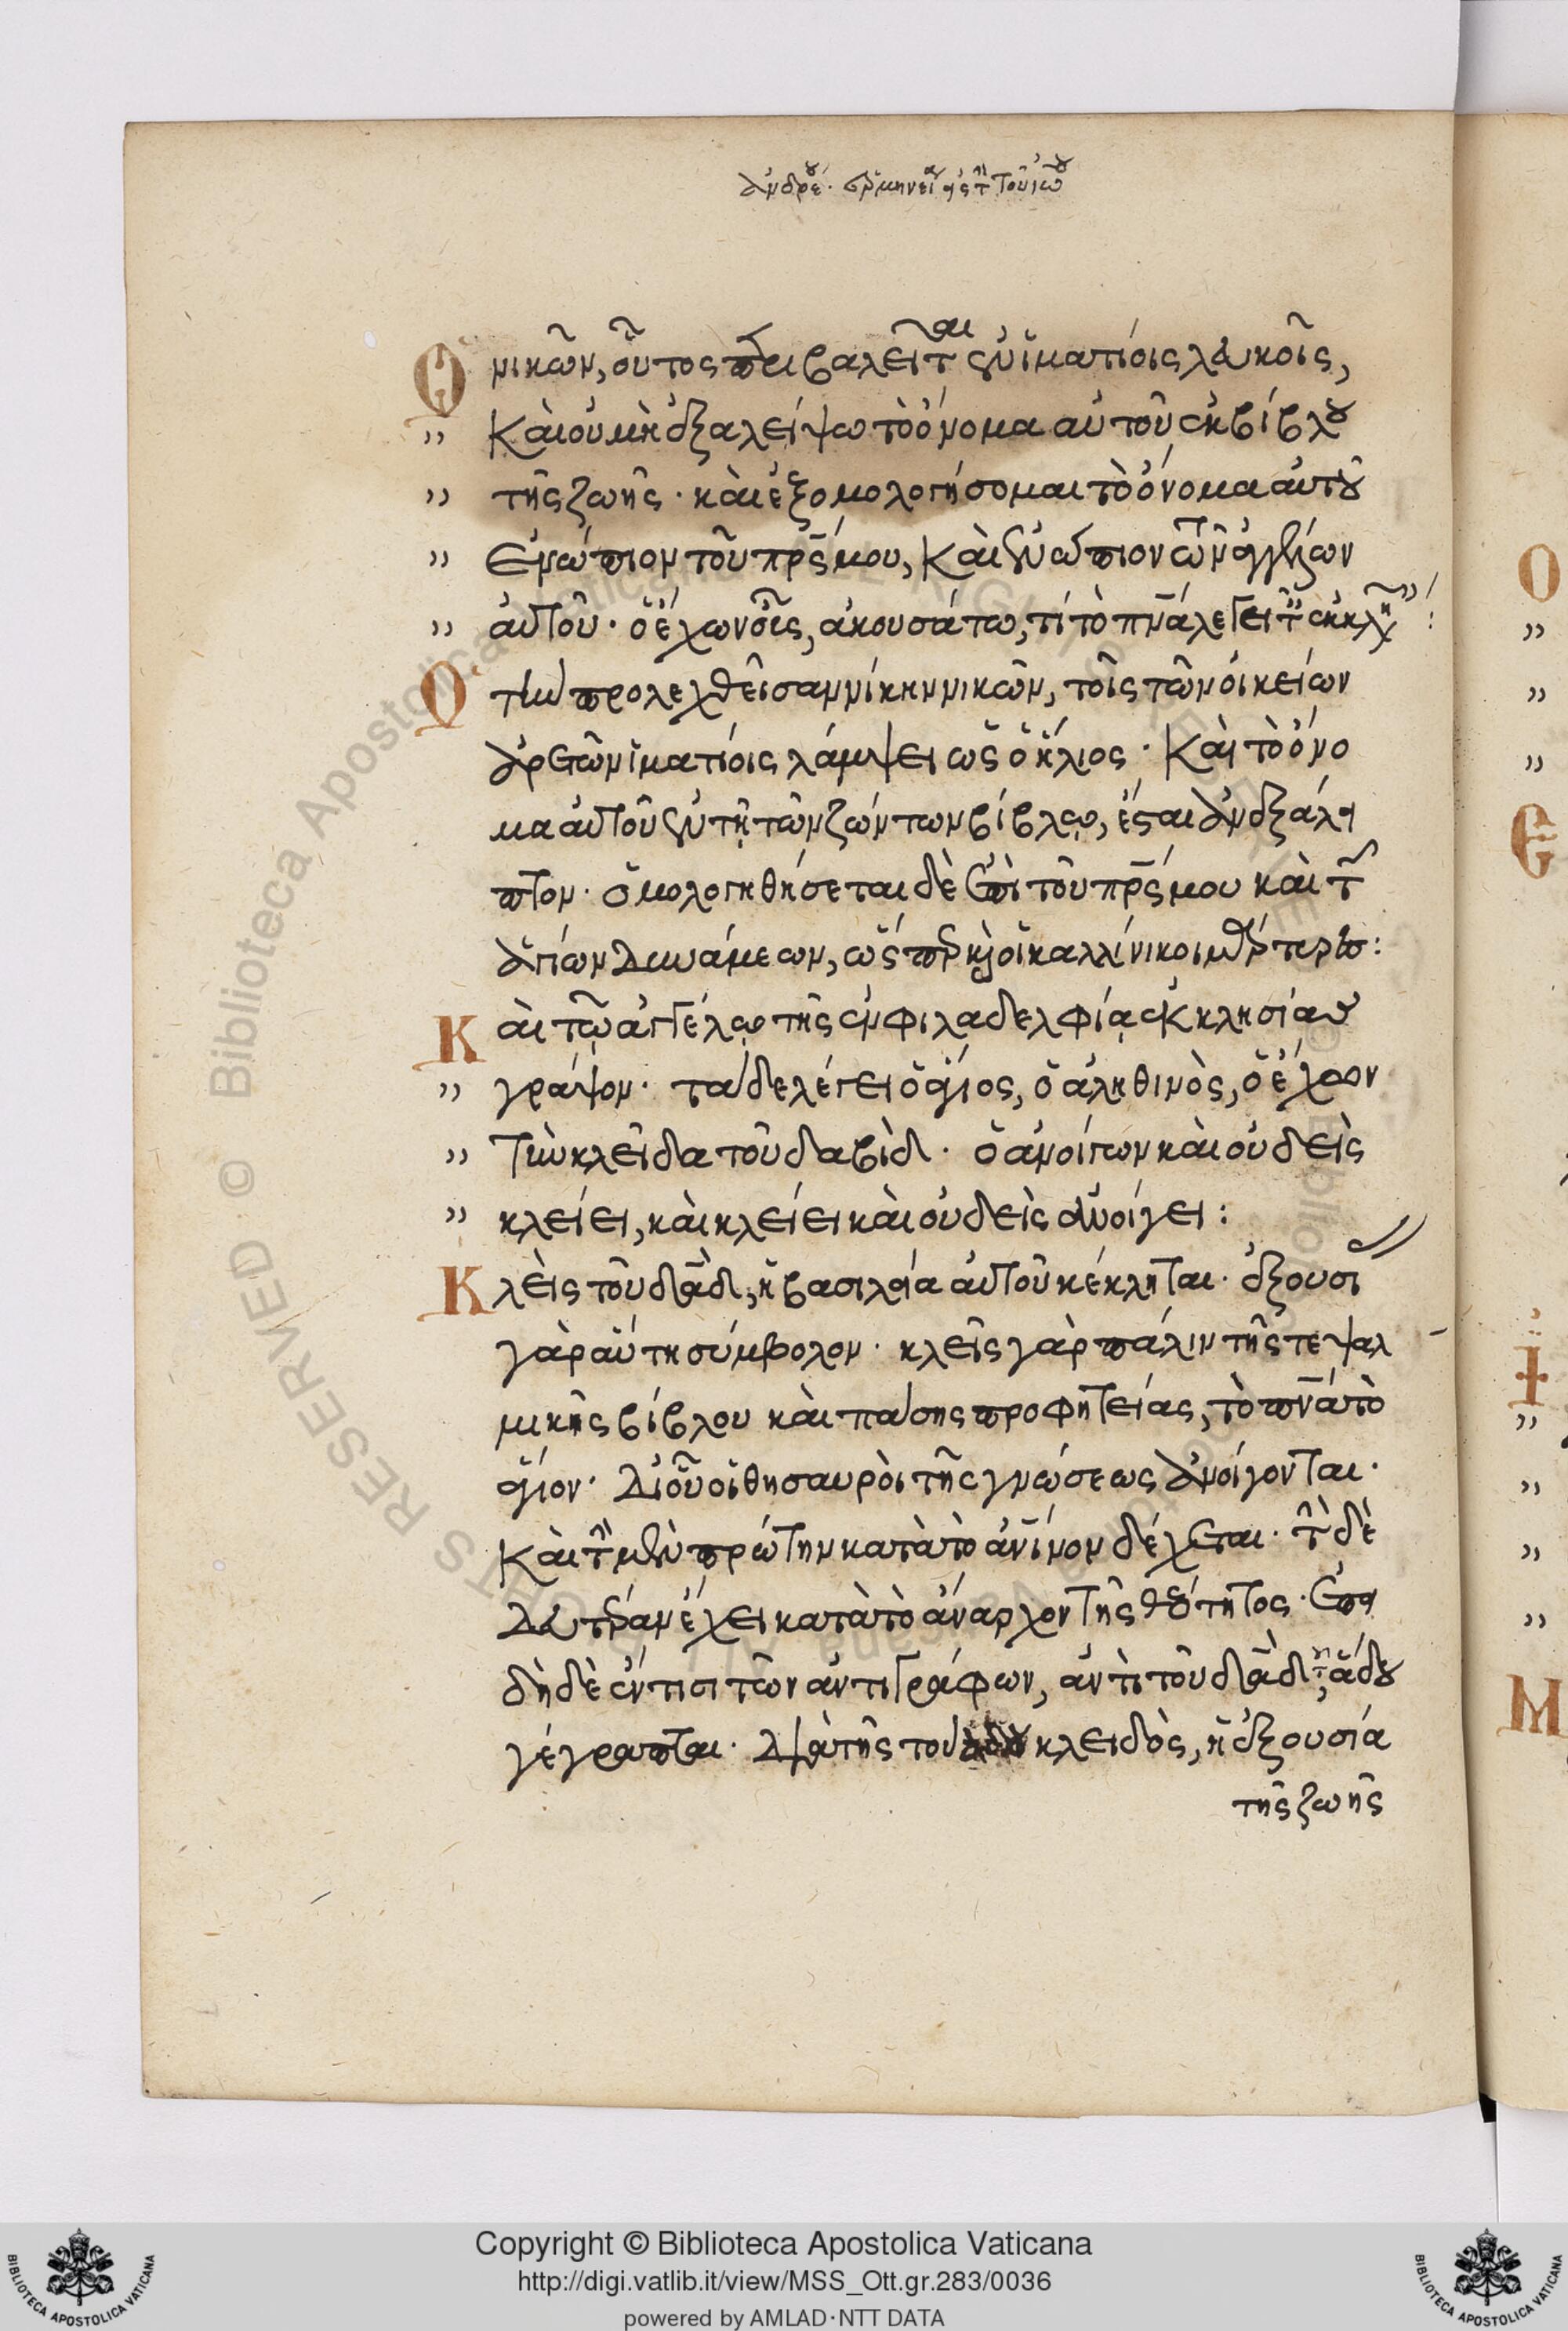 Ὁ νικῶν, οὗτος περιβαλεῖται ἐν ἱματίοις λευκοῖς,
καὶ οὐ μὴ ἐξαλείψω τὸ ὄνομα αὐτοῦ ἐκ βίβλου
τῆς ζωῆς · καὶ ἐξομολογήσομαι τὸ ὄνομα αὐτοῦ
ἐνώπιον τοῦ πρς μου, καὶ ἐνώπιον τῶν ἀγγέλων
αὐτοῦ · ὁ ἔχων οὖς, ἀκουσάτω, τί τὸ πνα λέγει ταῖς ἐκκλη :
Ὁ τὴν προλεχθεῖσαν νίκην νικῶν, τοῖς τῶν οἰκείων
ἀρετῶν ἱματίοις λάμψει ὡς ὁ ἥλιος · καὶ τὸ ὄνο
μα αὐτοῦ ἐν τῇ τῶν ζώντων βίβλῳ, ἔσται ἀνεξάλει
πτον · ὁμολογηθήσεται δὲ ἐπὶ τοῦ πρς μου καὶ τῶν
ἁγίων δυνάμεων, ὥσπερ καὶ οἱ καλλίνικοι μάρτυρες :
Καὶ τῷ ἀγγέλῳ τῆς ἐν φιλαδελφίᾳ ἐκκλησίας
γράψον · τάδε λέγει ὁ ἅγιος, ὁ ἀληθινὸς, ὁ ἔχων
τὴν κλεῖδα τοῦ δαβίδ · ὁ ἀνοίγων καὶ οὐδεὶς
κλείει, καὶ κλείει καὶ οὐδεὶς ἀνοίγει :
Κλεὶς τοῦ δαδ, ἡ βασιλεία αὐτοῦ κέκληται · ἐξουσίας
γὰρ αὕτη σύμβολον · κλεῖς γὰρ πάλιν τῆς τε ψαλ
μικῆς βίβλου καὶ πάσης προφητείας, τὸ πνα τὸ
ἅγιον · δι' οὗ οἱ θησαυροὶ τῆς γνώσεως ἀνοίγονται ·
καὶ τὴν μὲν πρώτην κατὰ τὸ ἀνινον δέχεται · τὴν δὲ
δευτέραν ἔχει κατὰ τὸ ἄναρχον τῆς θεότητος · ἐπει
δὴ δὲ ἔν τισι τῶν ἀντιγράφων, ἀντὶ τοῦ δαδ, τοῦ ᾅδου
γέγραπται · διὰ τῆς τοῦ ᾅδου κλειδὸς, ἡ ἐξουσία
τῆς ζωῆς
Copyright © Biblioteca Apostolica Vaticana
http://digi.vatlib.it/view/MSS_Ott.gr.283/0036
powered by AMLAD·NTT DATA